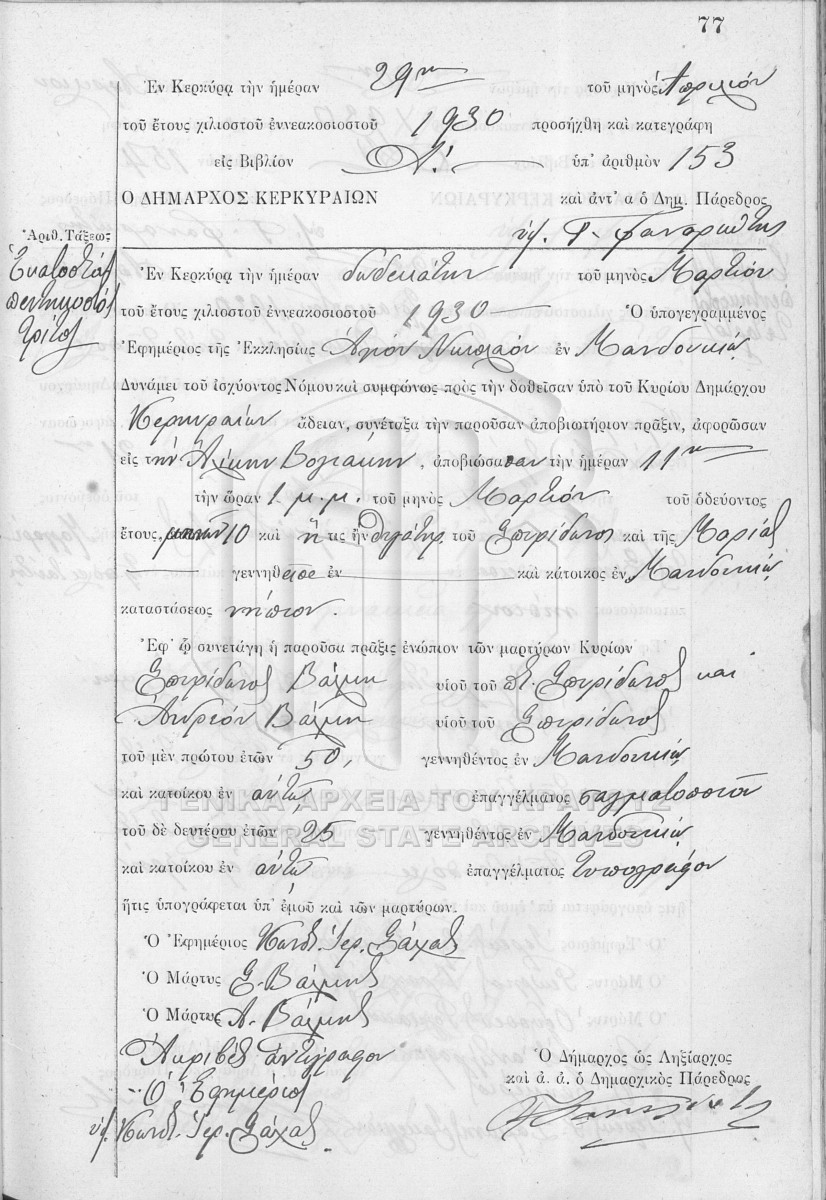 77
Ἐν Κερκύρᾳ τὴν ἡμέραν 29ην τοῦ μηνὸς Ἀπριλίου
τοῦ ἔτους χιλιοστοῦ ἐννεακοσιοστοῦ 1930 προσήχθη καὶ κατεγράφη
εἰς Βιβλίον Α΄. ὑπ᾽ ἀριθμὸν 153
Ο ΔΗΜΑΡΧΟΣ ΚΕΡΚΥΡΑΙΩΝ καὶ ἀντ᾽ α ὁ Δημ. Πάρεδρος
Ἀριθ. Τάξεως
Ἑκατοστὸς
πεντηκοστὸς
τρίτος
Ἐν Κερκύρᾳ τὴν ἡμέραν δωδεκάτην τοῦ μηνὸς Μαρτίου
τοῦ ἔτους χιλιοστοῦ ἐννεακοσιοστοῦ 1930 Ὁ ὑπογεγραμμένος
Ἐφημέριος τῆς Ἐκκλησίας Ἁγίου Νικολάου ἐν Μανδουκίῳ
Δυνάμει τοῦ ἰσχύοντος Νόμου καὶ συμφώνως πρὸς τὴν δοθεῖσαν ὑπὸ τοῦ Κυρίου Δημάρχου
Κερκυραίων ἄδειαν, συνέταξα τὴν παροῦσαν ἀποβιωτήριον πρᾶξιν, ἀφορῶσαν
εἰς τὴν Ἀλίκην Βολιάκην, ἀποβιώσασαν τὴν ἡμέραν 11ην
τὴν ὥραν 1 μ.μ. τοῦ μηνὸς Μαρτίου τοῦ ὁδεύοντος
ἔτους, μηνῶν 10 καὶ ἥ τις ἦν θυγάτηρ τοῦ Σπυρίδωνος καὶ τῆς Μαρίας
γεννηθεῖσα ἐν καὶ κάτοικος ἐν Μανδουκίῳ
καταστάσεως νήπιον.
Ἐφ᾽ ᾧ συνετάγη ἡ παροῦσα πρᾶξις ἐνώπιον τῶν μαρτύρων Κυρίων
Σπυρίδωνος Βάλμη υἱοῦ τοῦ πτ. Σπυρίδωνος καὶ
Ἀνδρέου Βάλμη υἱοῦ τοῦ Σπυρίδωνος
τοῦ μὲν πρώτου ἐτῶν 50, γεννηθέντος ἐν Μανδουκίῳ
καὶ κατοίκου ἐν αὐτῷ ἐπαγγέλματος σαγματοποιοῦ
τοῦ δὲ δευτέρου ἐτῶν 25 γεννηθέντος ἐν Μανδουκίῳ
καὶ κατοίκου ἐν αὐτῷ ἐπαγγέλματος τυπογράφου
ἥτις ὑπογράφεται ὑπ᾽ ἐμοῦ καὶ τῶν μαρτύρων.
Ὁ Ἐφημέριος Κωνστ. Ἱερ. Σάχας
Ὁ Μάρτυς Σ. Βάλμης
Ὁ Μάρτυς Α. Βάλμης
Ἀκριβὲς ἀντίγραφον
Ὁ Ἐφημέριος
ὑπ. Κωνστ. Ἱερ. Σάχας
Ὁ Δήμαρχος ὡς Ληξίαρχος
καὶ ἀ. ἀ. ὁ Δημαρχικὸς Πάρεδρος
ΓΕΝΙΚΑ ΑΡΧΕΙΑ ΤΟΥ ΚΡΑΤΟΥΣ
GENERAL STATE ARCHIVES